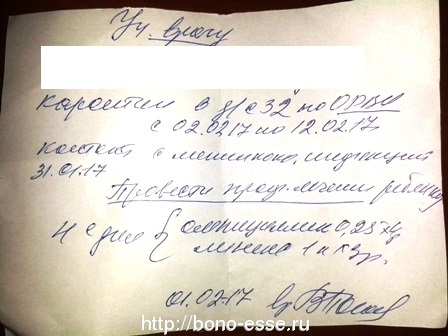 Уч. врачу
карантин в д/с 32 по ОРВИ
с 02.02.17 по 12.02.17
контакт с инфекцией
31.01.17
Провести проф. лечение ребёнку
4 дня 0,25 х
1 х 3 р.
01.02.17 вр.
http://bono-esse.ru